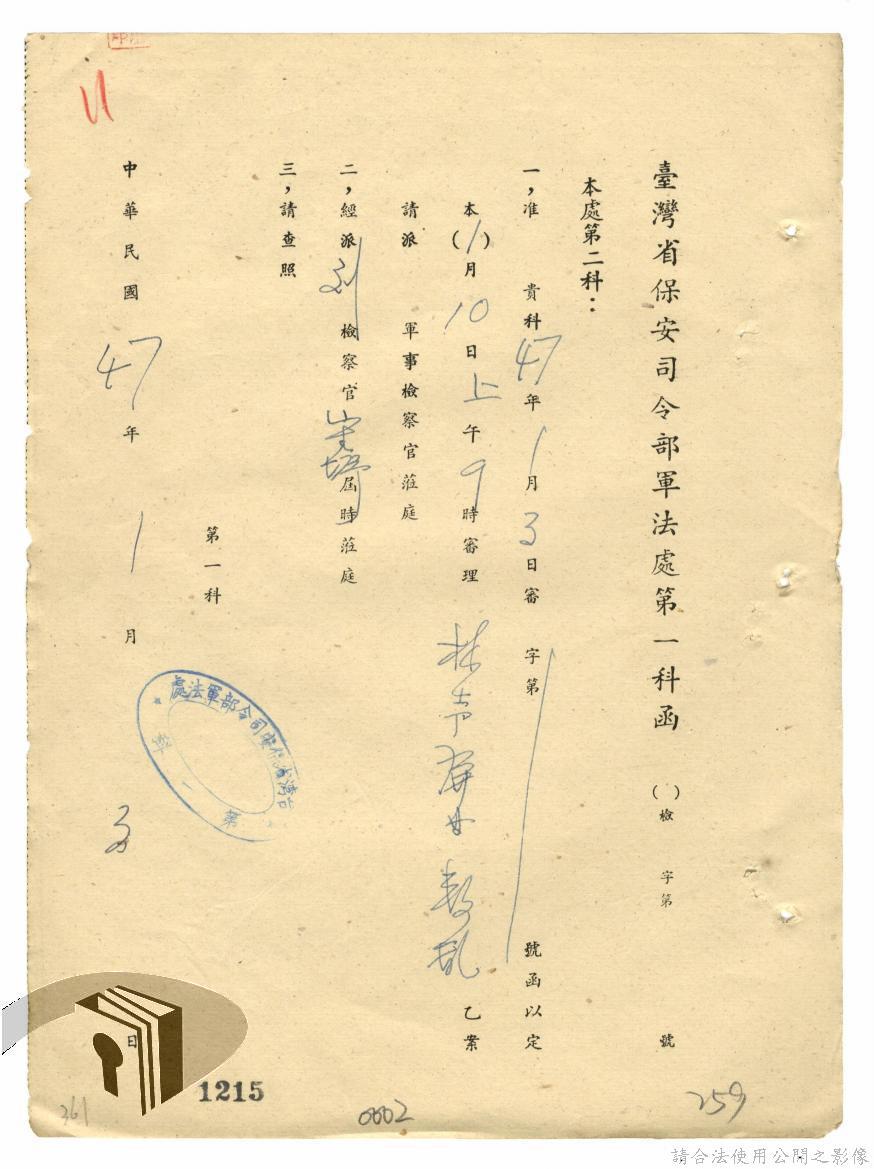 臺灣省保安司令部軍法處第一科函 ( )檢 字第 號
本處第二科：
一，准 貴科47年1月3日審 字第 號函以定
本(1)月10日上午9時審理 林 叛亂 乙案
請派 軍事檢察官蒞庭
二，經派劉檢察官 屆時蒞庭
三，請查照
第一科
中華民國 47 年 1 月 3 日
台灣省保安司令部軍法處
第一科
1215
0002
259
361
請合法使用公開之影像